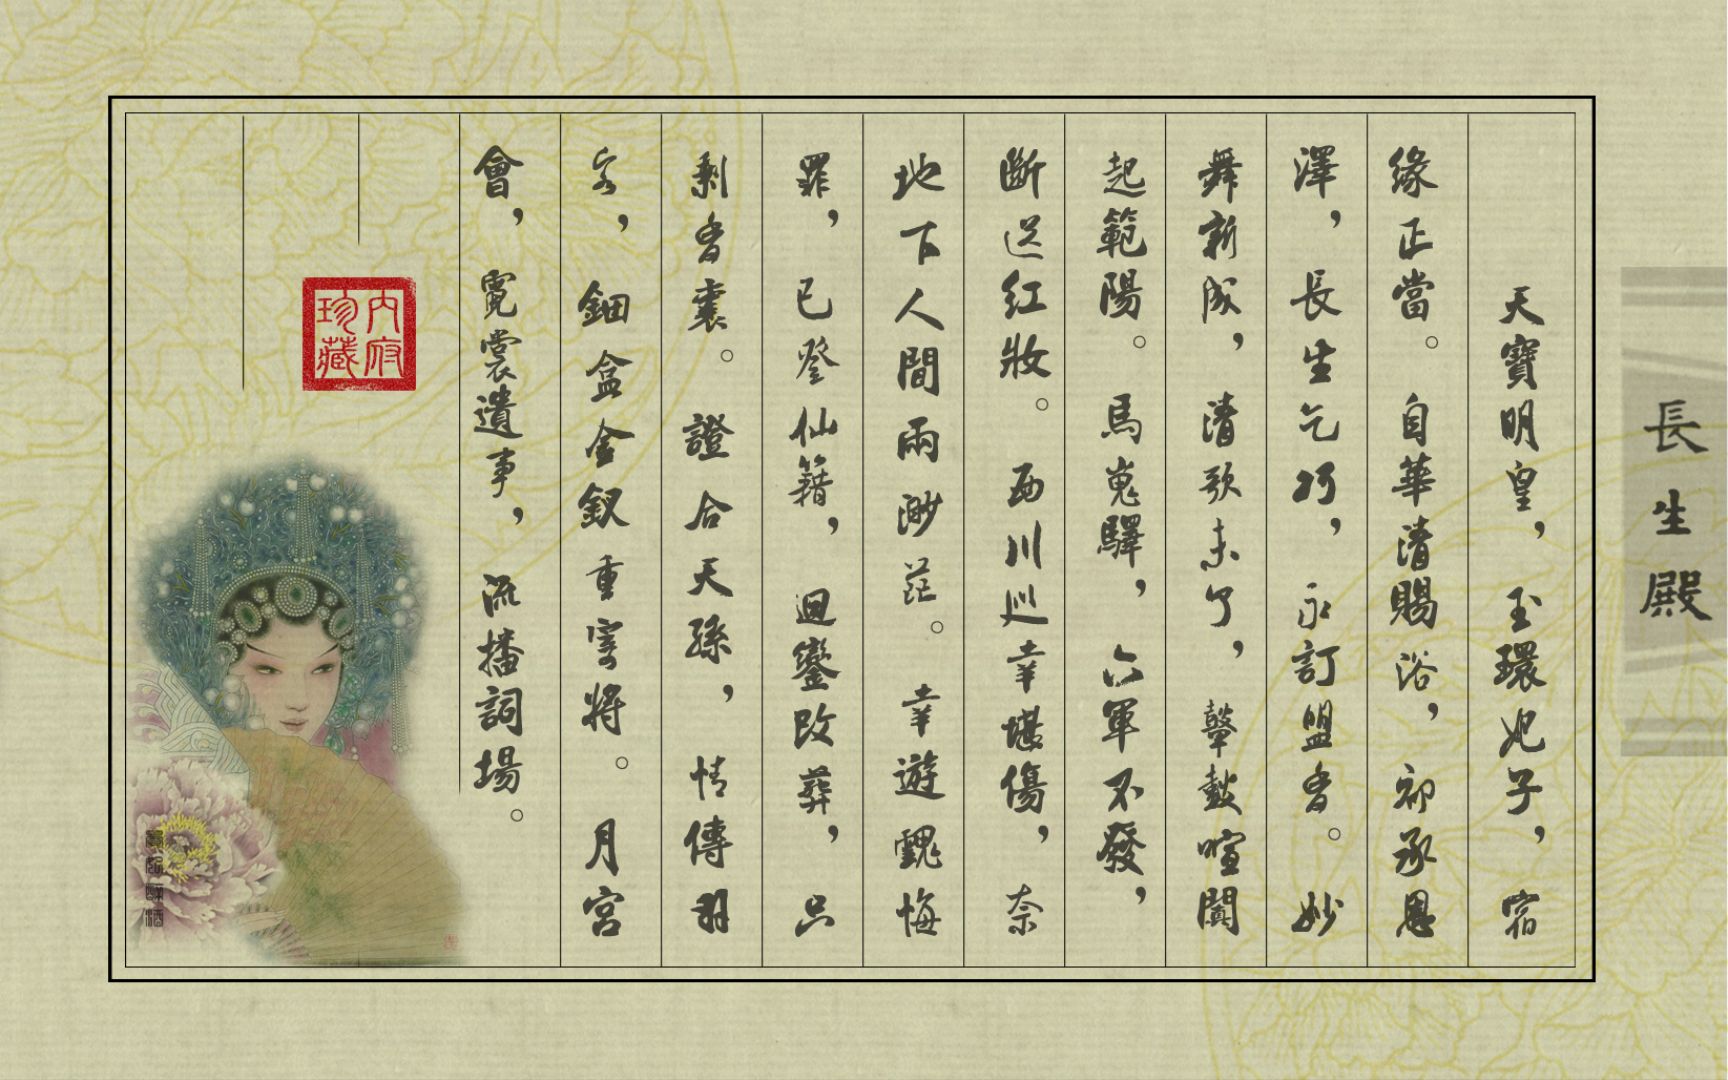 長生殿
天寶明皇，玉環妃子，宿
緣正當。自華清賜浴，初承恩
澤，長生乞巧，永訂盟香。妙
舞新成，清歌未了，鼙鼓喧闐
起範陽。馬嵬驛，六軍不發，
斷送紅妝。西川巡幸堪傷，奈
地下人間兩渺茫。幸遊魂悔
罪，已登仙籍，迴鑾改葬，只
剩香囊。證合天孫，情傳羽
客，鈿盒金釵重寄將。月宮
會，霓裳遺事，流播詞場。
內府
珍藏
貴妃醉酒